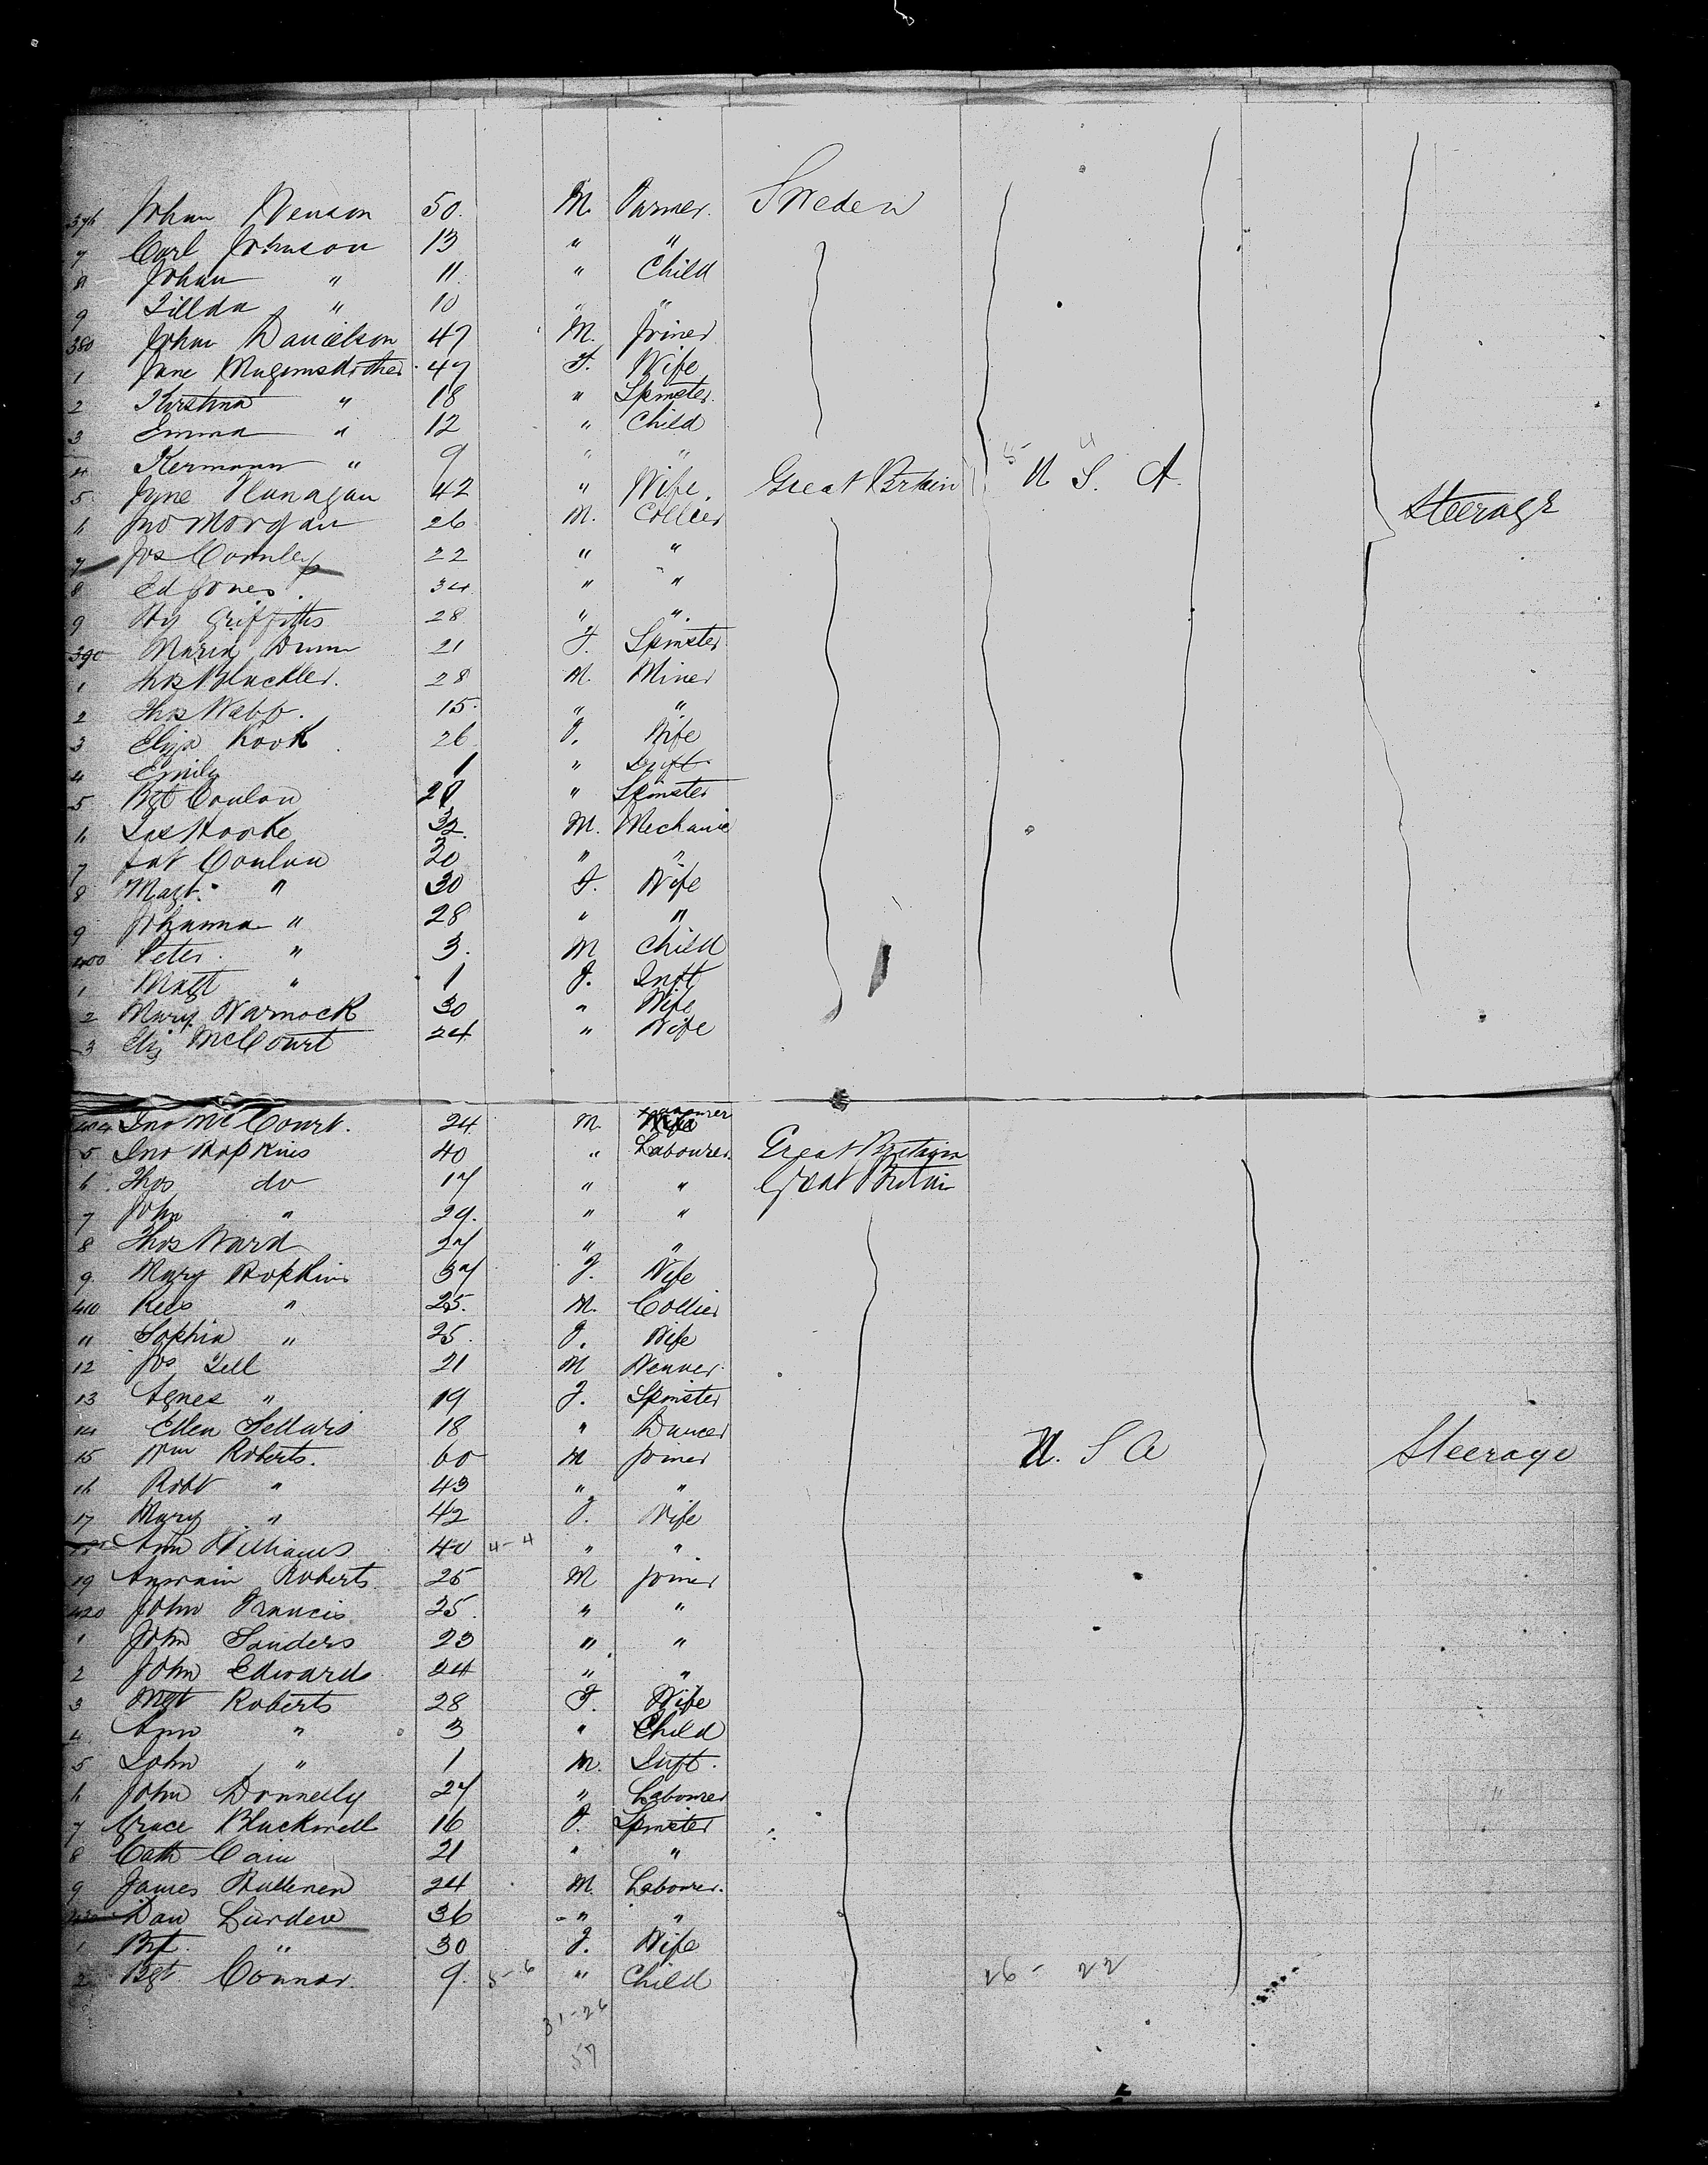 376 Johan Benson 50. M. Farmer. Sweden
7 Carl Johnson 13 " "
8 Johan " 11. " Child
9 Tillda " 10 " "
380 Johan Danielson 47 M. Joiner
1 Jane 47 F. Wife
2 Kirstina " 18 " Spinster.
3 Emma " 12 " Child
4 Hermann " 9 " "
5 Jane Flanagan 42 " Wife. Great Britain U. S. A.
6 Jno Morgan 26 M. Collier Steerage
7 Jos 22 " "
8 Ed Jones. 34 " "
9 Hy Griffiths 28 " "
390 Maria Dunn 21 F. Spinster
1 Thos Blackler. 28 M. Miner
2 Thos Webb. 15. " "
3 Eliza Rook 26 F. Wife
4 Emily 1 " Inft.
5 Bgt Conlon " Spinster
6 Jas Hooke 32 M. Mechanic
7 Pat Conlon 30 " "
8 Magt. " 30 F. Wife
9 Johanna " 28 " "
400 Peter. " 3. M Child
1 Magt " 1 F. Inft
2 Mary Warnock 30 " Wife
3 Eliz McCourt 24 " Wife
404 Jno McCourt. 24 M. Labourer
5 Jno Hopkins 40 " Labourer. Great Britain
6 Thos do 17 " " Great Britain
7 John " 29. " "
8 Thos Ward 27 " "
9 Mary Hopkins 37 F. Wife
410 Rees " 25. M. Collier
11 Sophia " 25. F. Wife
12 Jos Tell 21 M Weaver.
13 Agnes " 19 F. Spinster
14 Ellen Sellars 18 " Dancer
15 Wm Roberts. 60 M Joiner U. S A Steerage
16 Robt " 43 " "
17 Mary " 42 F. Wife
18 Ann Williams 40 4-4 " "
19 Roberts 25 M Joiner
420 John Francis 25. " "
1 John Sanders 23 " "
2 John Edwards 24 " "
3 Mgt Roberts 28 F. Wife
4 Ann " 3 " Child
5 John " 1 M. Inft.
6 John Donnelly 27 " Labourer
7 Grace Blackwell 16 F. Spinster
8 Cath Cain 21 " "
9 James 24 M. Labourer.
430 Dan Lurden 36 " "
1 Bgt. " 30 F. Wife
2 Bgt Connor. 9. 5-6 " Child 26-22
31-26
57